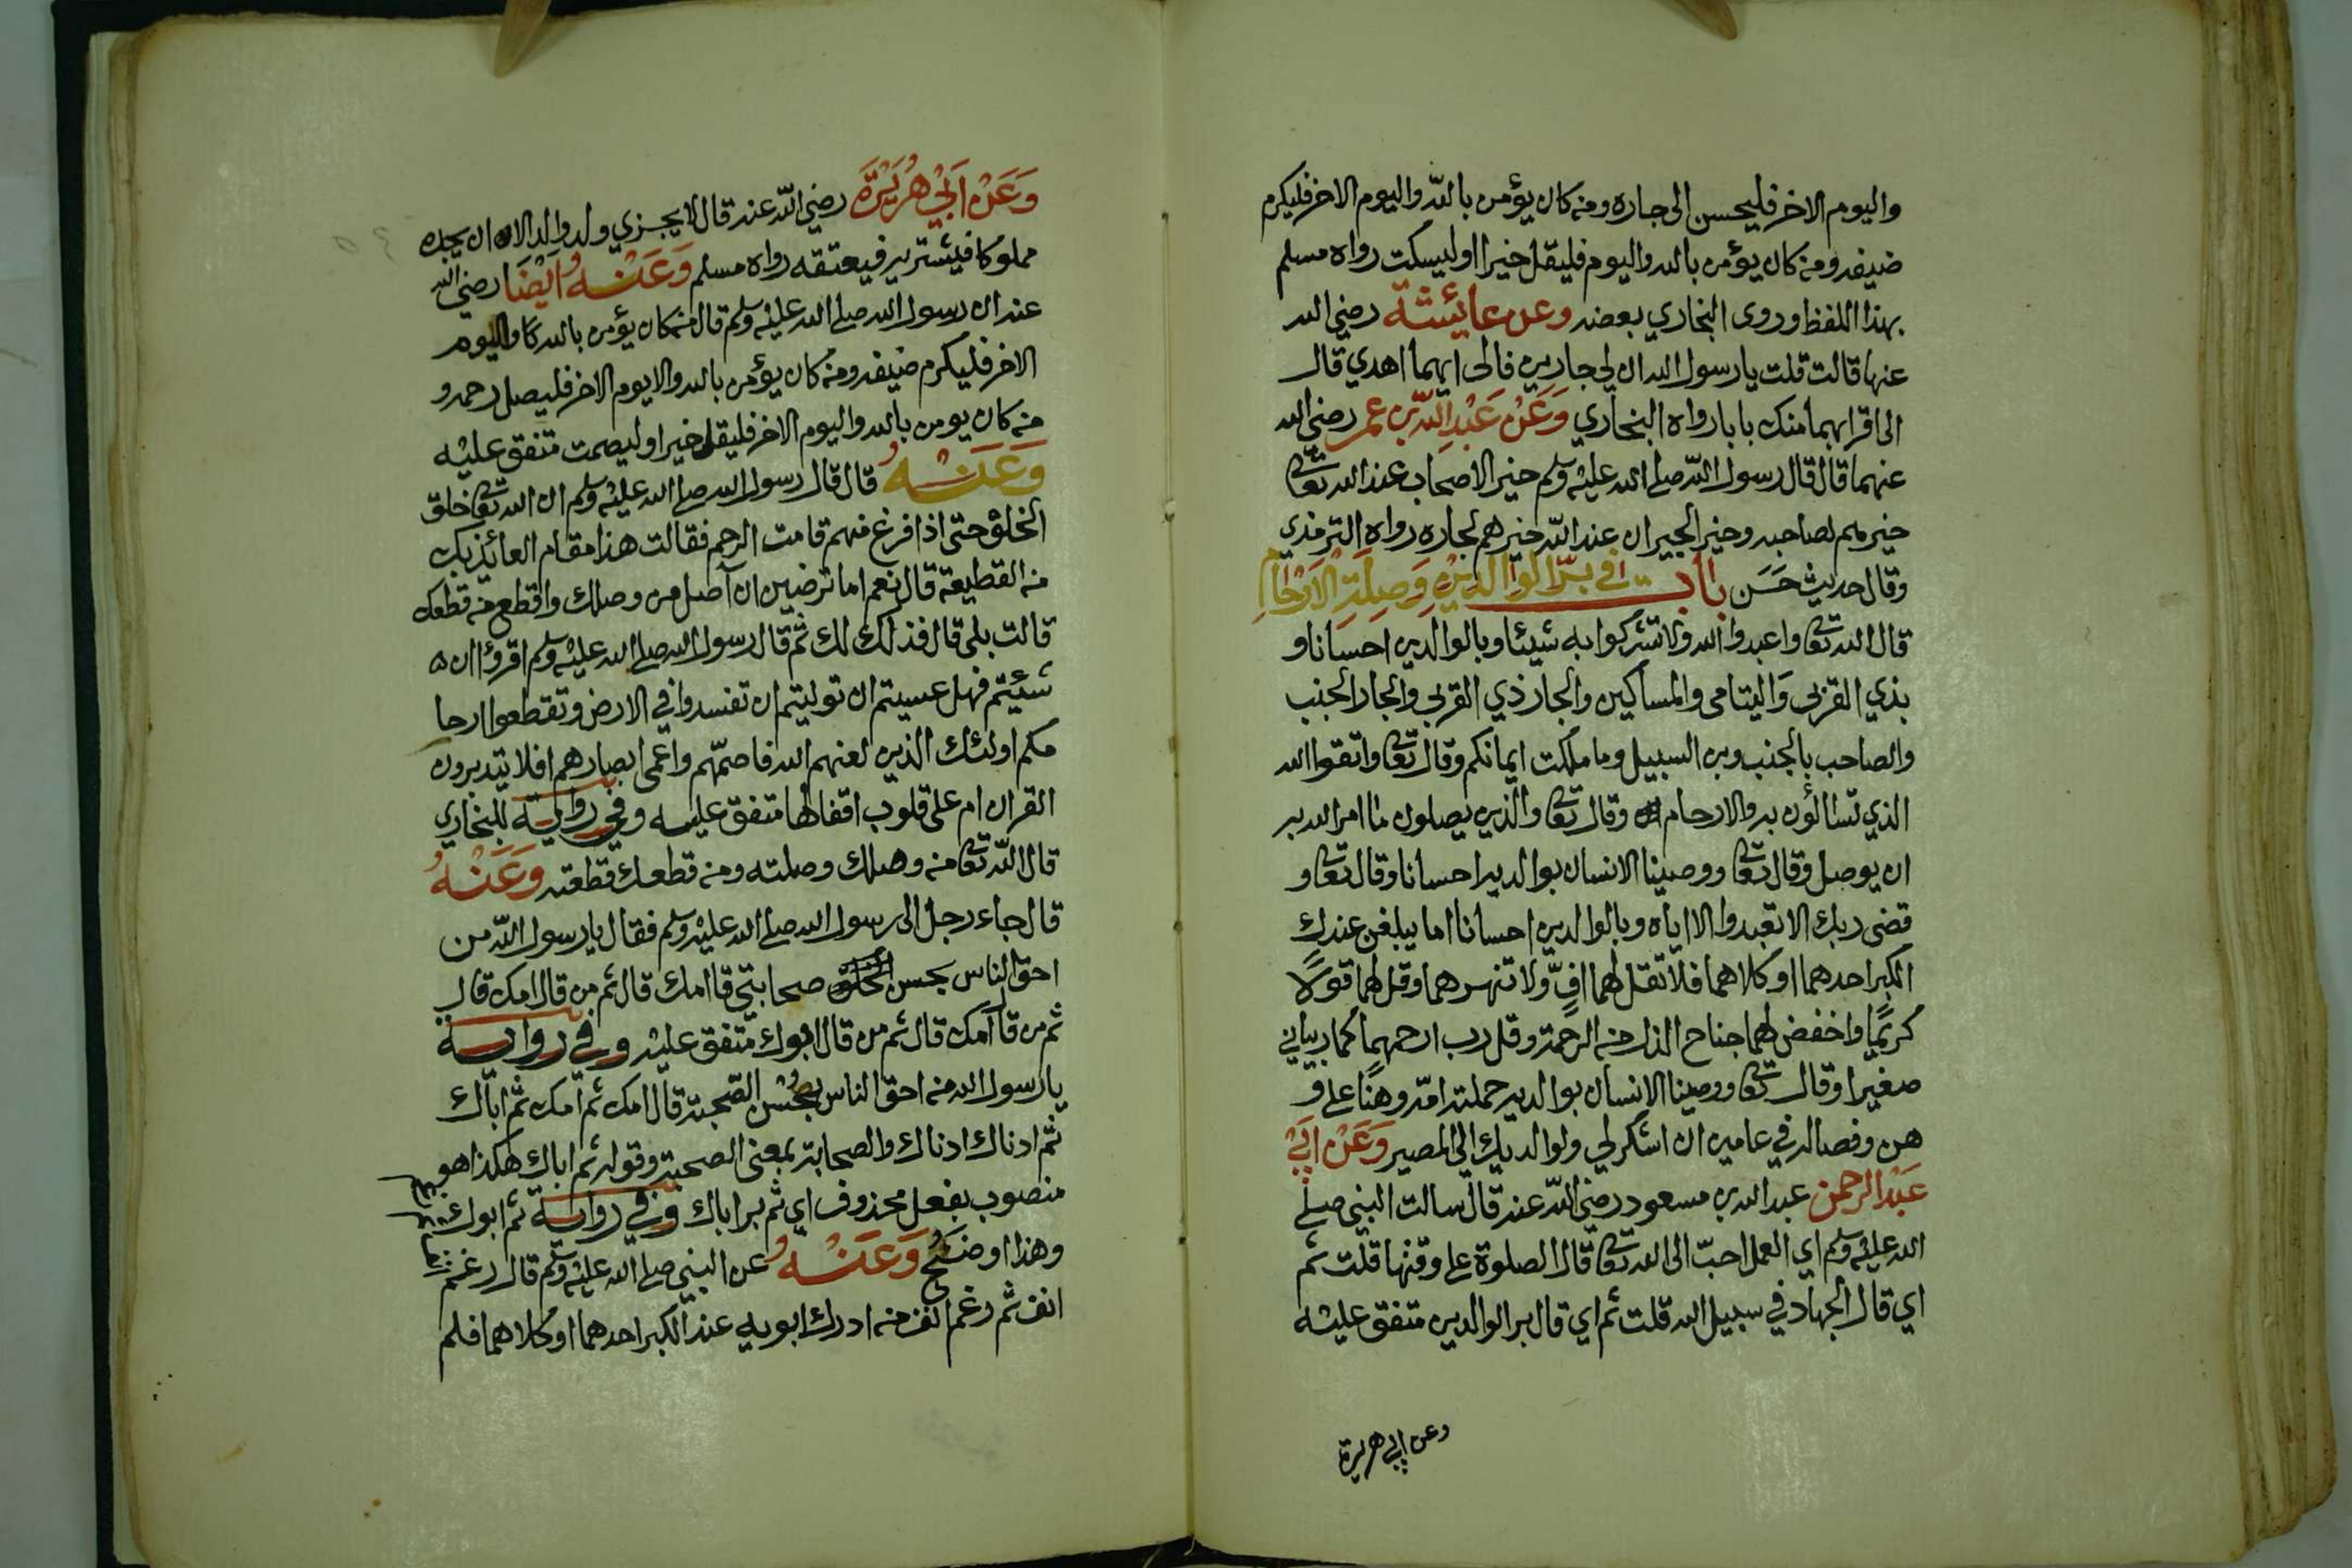 واليوم الاخر فليحسن الى جاره ومن كان يؤمن بالله واليوم الاخر فليكرم
ضيفه ومن كان يؤمن بالله واليوم فليقل خيرا اوليسكت رواه مسلم
بهذا اللفظ وروى البخاري بعضه وعن عايئشة رضي الله
عنها قالت قلت يارسول الله ان لي جارين فالى ايهما اهدي قال
الى اقرابهما منك بابا رواه البخاري وَعَنْ عَبْدِ اللّٰه بن عمر رضي الله
عنهما قال قال رسول اللّه صلى الله عليه وسلم خير الاصحاب عند الله تعا
خيرهم لصاحبه وخير الجيران عند اللّه خيرهم لجاره رواه الترمذي
وقال حديث حَسَن باب في برّ الوالدين وَصِلَةِ الارْحَامِ
قال الله تعا واعبدوا الله ولا تشركوا به شيئا وبالوالدين احسانا و
بذي القربى واليتامى والمساكين والجار ذي القربى والجار الجنب
والصاحب بالجنب وبن السبيل وما ملكت ايمانكم وقال تعا واتقوا الله
الذي تسائلون به والارحام وقال تعا والذين يصلون ما امر الله به
ان يوصل وقال تعا ووصينا الانسان بوالديه احسانا وقال تعا و
قضى ربك الا تعبدوا الا اياه وبالوالدين احسانا اما يبلغن عندك
الكبر احدهما او كلاهما فلا تقل لهما افٍّ ولا تنهرهما وقل لهما قولًا
كريمًا واخفض لهما جناح الذل من الرحمة وقل رب ارحمهما كما ربياني
صغيرا وقال تعا ووصينا الانسان بوالديه حملته امّه وهنًا على و
هن وفصاله في عامين ان اشكر لي ولوالديك الي المصير وَعَنْ ابَيْ
عَبْد الرحمن عبد الله بن مسعود رضي اللّه عنه قال سالت النبي صلى
الله عليه وسلم اي العمل احبّ الى الله تعا قال الصلوة على وقتها قلت ثم
اي قال الجهاد في سبيل الله قلت ثم اي قال بر الوالدين متفق عليه
وعن ابي هريرة
وَعَنْ اَبَيْ هُرَيْرَةَ رضي اللّه عنه قال لا يجزي ولد والد الا ان يجده
مملوكا فيشتريه فيعتقه رواه مسلم وَعَنْهُ ايْضَا رضي الله
عنه ان رسول الله صلى الله عليه وسلم قال من كان يؤمن بالله واليوم
الاخر فليكرم ضيفه ومن كان يؤمن بالله والايوم الاخر فليصل رحمه و
من كان يومن بالله واليوم الاخر فليقل خيرا اوليصمت متفق عليه
وَعَنْهُ قال قال رسول الله صلى الله عليه وسلم ان الله تعا خلق
الخلق حتى اذا فرغ منهم قامت الرحم فقالت هذا مقام العائذ بك
من القطيعة قال نعم اما ترضين ان آصل من وصلك واقطع من قطعك
قالت بلى قال فذلك لك ثم قال رسول الله صلى الله عليه وسلم اقرؤا ان
شئيتم فهل عسيتم ان توليتم ان تفسدوا في الارض وتقطعوا ارحا
مكم اولئك الذين لعنهم الله فاصمّهم واعمى ابصارهم افلا يتدبرون
القران ام على قلوب اقفالها متفق عليه وفي رواية للبخاري
قال اللّه تعا من وصلك وصلته ومن قطعك قطعته وَعَنْهُ
قال جاء رجل الى رسول الله صلى الله عليه وسلم فقال يارسول اللّه من
احق الناس بحسن صحابتي قا امك قال ثم من قال امك قال
ثم من قا امك قال ثم من قال ابوك متفق عليه وفي رواية
يارسول الله من احق الناس بحُسْن الصّحبة قال امك ثم امك ثم اباك
ثم ادناك ادناك والصحابة بمعنى الصحبة وقوله ثم اباك هكذا هو
منصوب بفعل محذوف اي ثم بر اباك وفي رواية ثم ابوك
وهذا اوضح وَعَنْهُ عن النبي صلى الله عليه وسلم قال رغم
انف ثم رغم انف من ادرك ابويه عند الكبر احدهما او كلاهما فلم